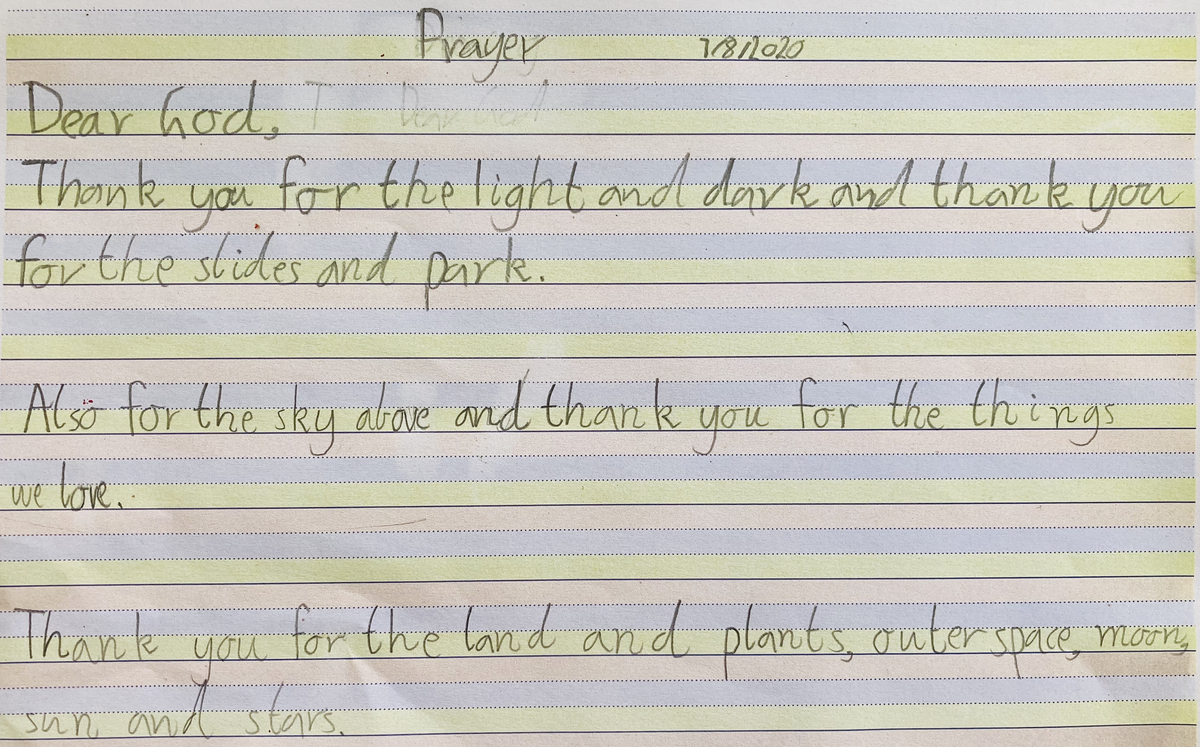 Prayer 7/8/2020
Dear God,
Thank you for the light and dark and thank you
for the slides and park.
Also for the sky above and thank you for the things
we love.
Thank you for the land and plants, outer space, moon,
sun and stars.